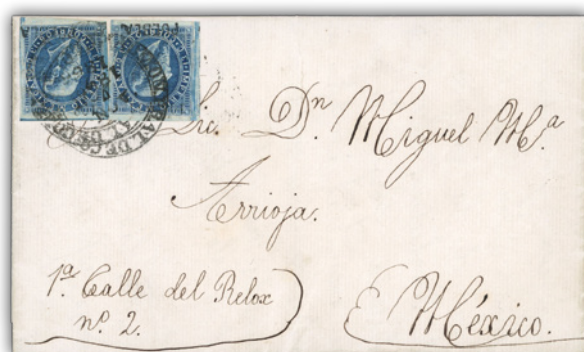 PUEBLA
Lic. Dn. Miguel Ma.
Arrioja.
1a. Calle del Relox
no. 2.
México.